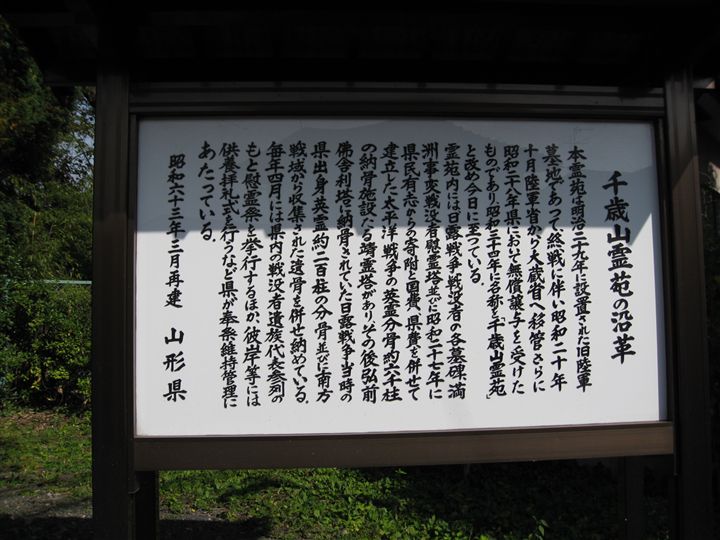 千歳山霊苑の沿革
本霊苑は明治三十九年に設置された旧陸軍
墓地であって、終戦に伴い昭和二十年
十月陸軍省から大蔵省へ移管、さらに
昭和二十八年県において無償譲与を受けた
ものであり昭和三十四年に名称を「千歳山霊苑」
と改め今日に至っている。
霊苑内には日露戦争戦没者の各墓碑、満
洲事変戦没者慰霊塔並びに昭和二十七年に
県民有志からの寄附と国費、県費を併せて
建立した太平洋戦争の英霊分骨約六千柱
の納骨施設たる靖霊塔があり、その後弘前
佛舎利塔に納骨されていた日露戦争当時の
県出身英霊約二百柱の分骨並びに南方
戦域から収集された遺骨を併せ納めている。
毎年四月には県内の戦没者遺族代表参列の
もと慰霊祭を挙行するほか、彼岸等には
供養拝礼式を行うなど県が奉斎維持管理に
あたっている。
昭和六十三年三月再建 山形県